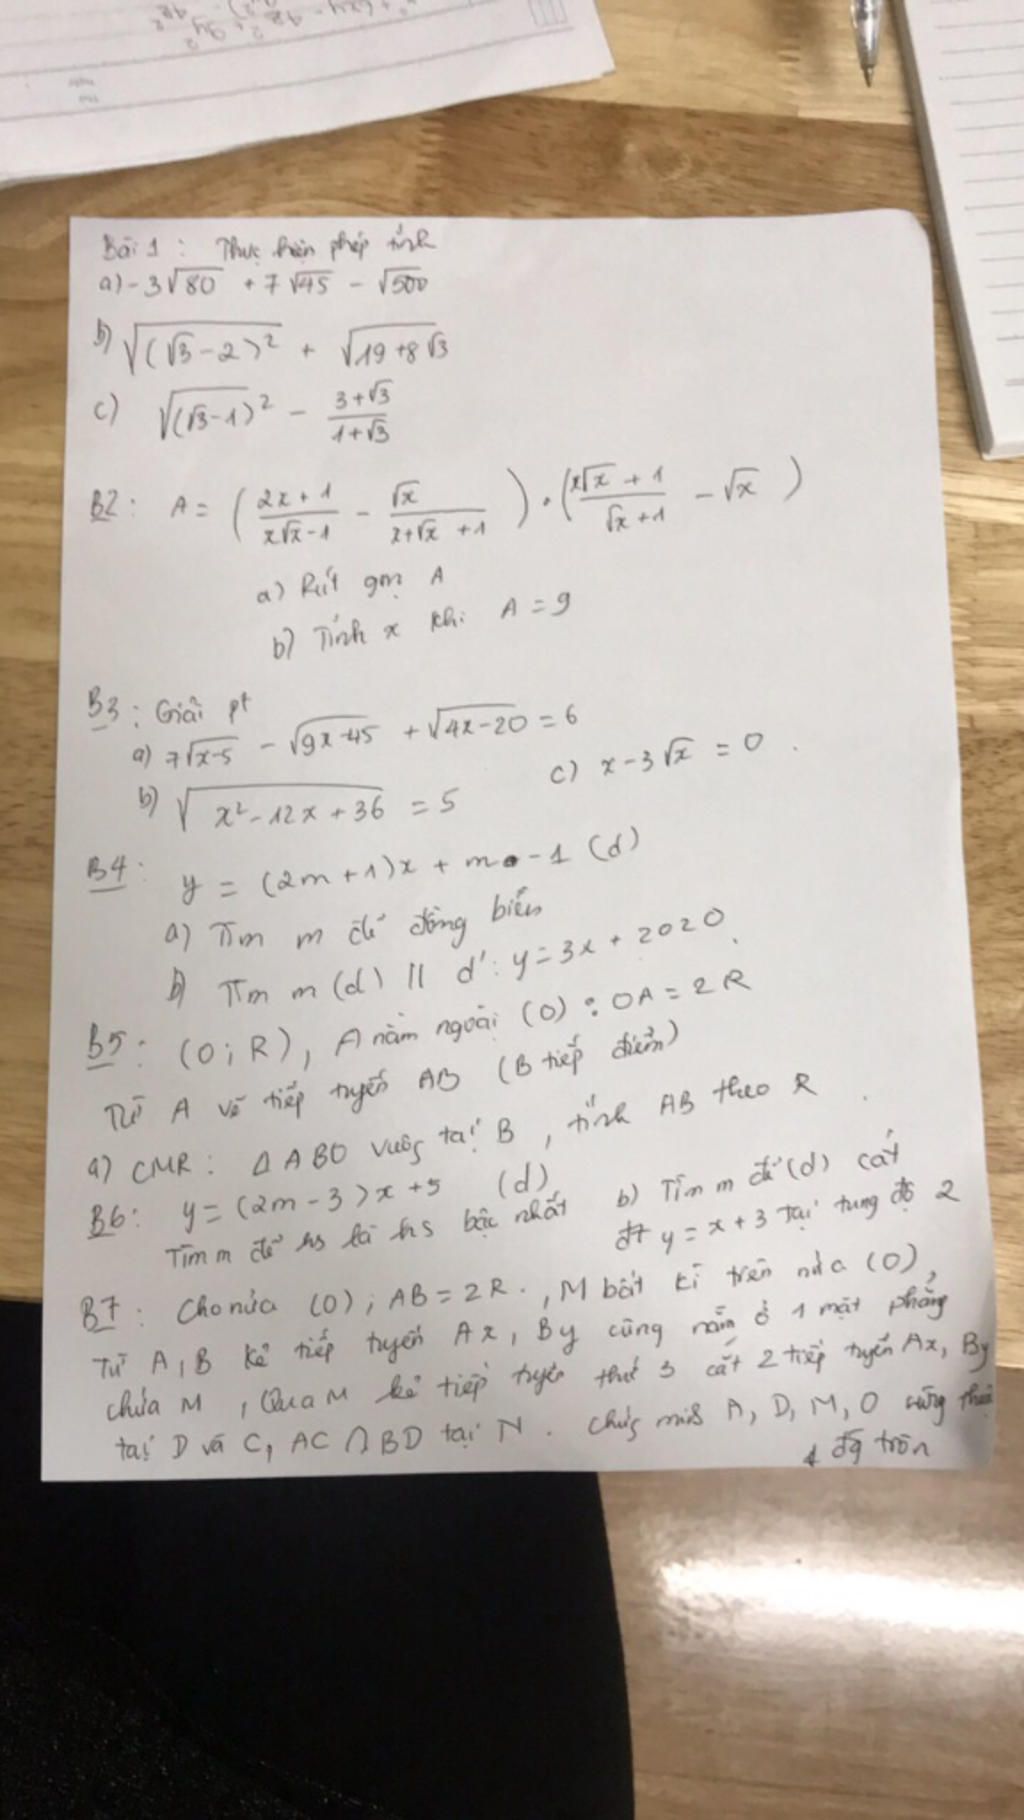 Bài 1 : Thực hiện phép tính
a) -3√80 + 7√45 - √500
b) √(√3-2)² + √19+8√3
c) √(√3-1)² - 3+√3 / 1+√3
B2 : A = ( 2x+1 / x√x-1 - √x / x+√x+1 ) . ( x√x+1 / √x+1 - √x )
a) Rút gọn A
b) Tính x khi A = 9
B3 : Giải pt
a) 7√x-5 - √9x-45 + √4x-20 = 6
b) √x²-12x+36 = 5 c) x-3√x = 0 .
B4 : y = (2m+1)x + m - 1 (d)
a) Tìm m để đồng biến
b) Tìm m (d) // d' : y = 3x + 2020.
B5 : (O ; R), A nằm ngoài (O) : OA = 2R
Từ A vẽ tiếp tuyến AB (B tiếp điểm)
a) CMR : Δ ABO vuông tại B , tính AB theo R .
B6 : y = (2m-3)x + 5 (d)
Tìm m để hs là hs bậc nhất
b) Tìm m để (d) cắt
đt y = x + 3 tại tung độ 2
B7 : Cho nửa (O) ; AB = 2R . , M bất kì trên nửa (O),
Từ A, B kẻ tiếp tuyến Ax, By cũng nằm ở 1 mặt phẳng
chứa M , Qua M kẻ tiếp tuyến thứ 3 cắt 2 tiếp tuyến Ax, By
tại D và C, AC ∩ BD tại N . Chứng minh A, D, M, O cùng thuộc
1 đg tròn